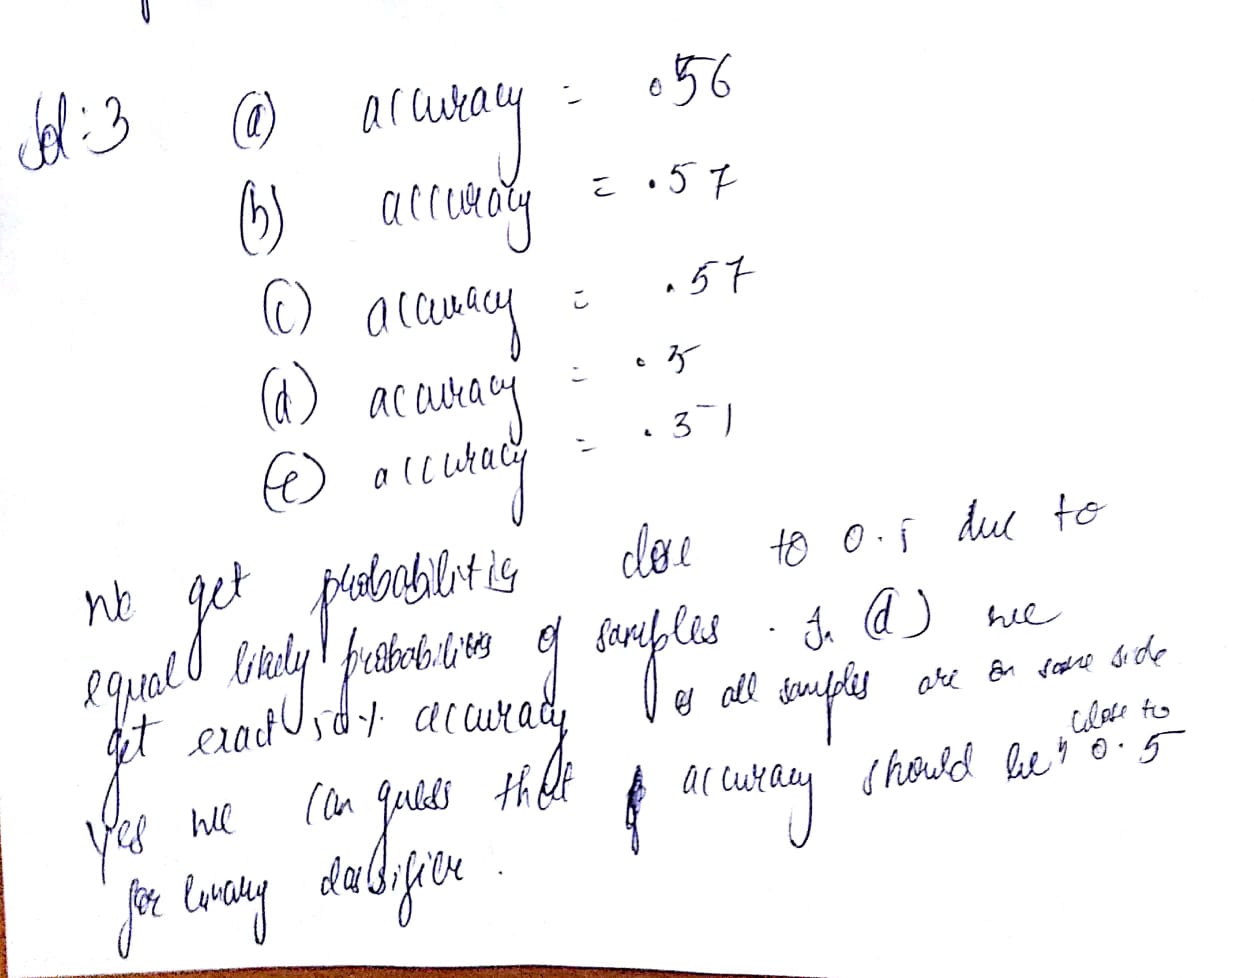 Sol:3 (a) accuracy = .56
(b) accuracy = .57
(c) accuracy = .57
(d) accuracy = .5
(e) accuracy = .51
We get probabilities close to 0.5 due to
equal likely probabilities of samples. In (d) we
get exact 50% accuracy as all samples are on same side
Yes we can guess that accuracy should be close to 0.5
for binary classifier.